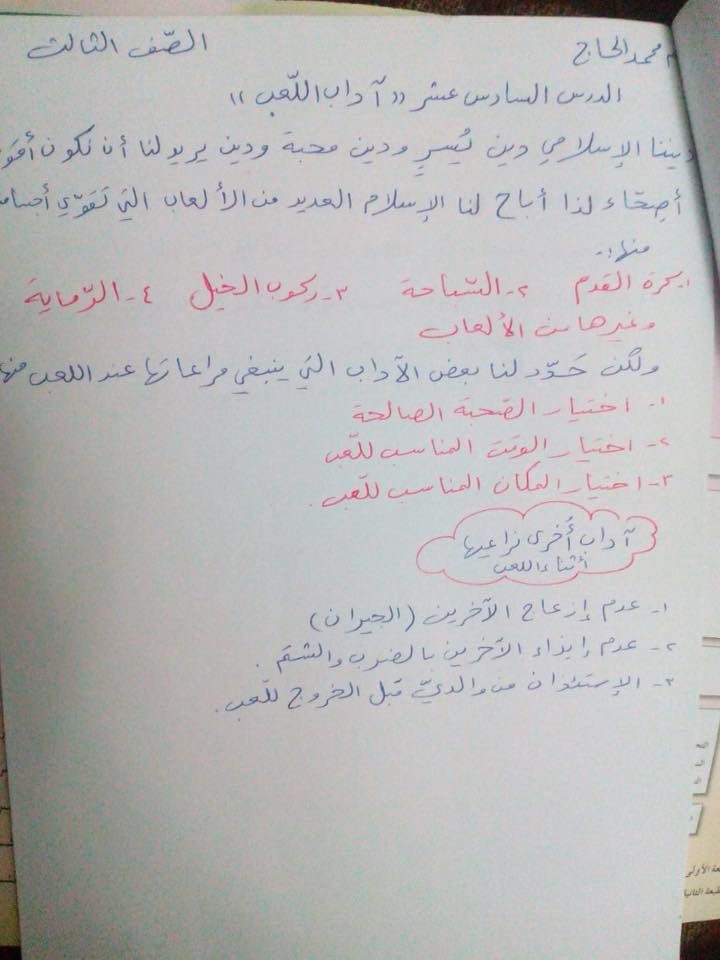 م محمد الحاج الصّف الثالث
الدرس السادس عشر "آداب اللّعب"
ديننا الإسلامي دين يُسرٍ ودين محبة ودين يريد لنا أن نكون أقو
أصِحّاء لذا أباح لنا الإسلام العديد من الألعاب التي تقوّي أجسام
منها:-
١. كرة القدم ٢- السّباحة ٣- ركوب الخيل ٤- الرّماية
وغيرها من الألعاب
ولكن حَدّد لنا بعض الآداب التي ينبغي مراعاتها عند اللعب منها
١- اختيار الصّحبة الصالحة
٢- اختيار الوقت المناسب للّعب
٣- اختيار المكان المناسب للّعب.
آداب أُخرى نراعيها
أثناء اللعب
١- عدم إزعاج الآخرين (الجيران)
٢- عدم إيذاء الآخرين بالضرب والشتم.
٣- الإستئذان من والديّ قبل الخروج للّعب.